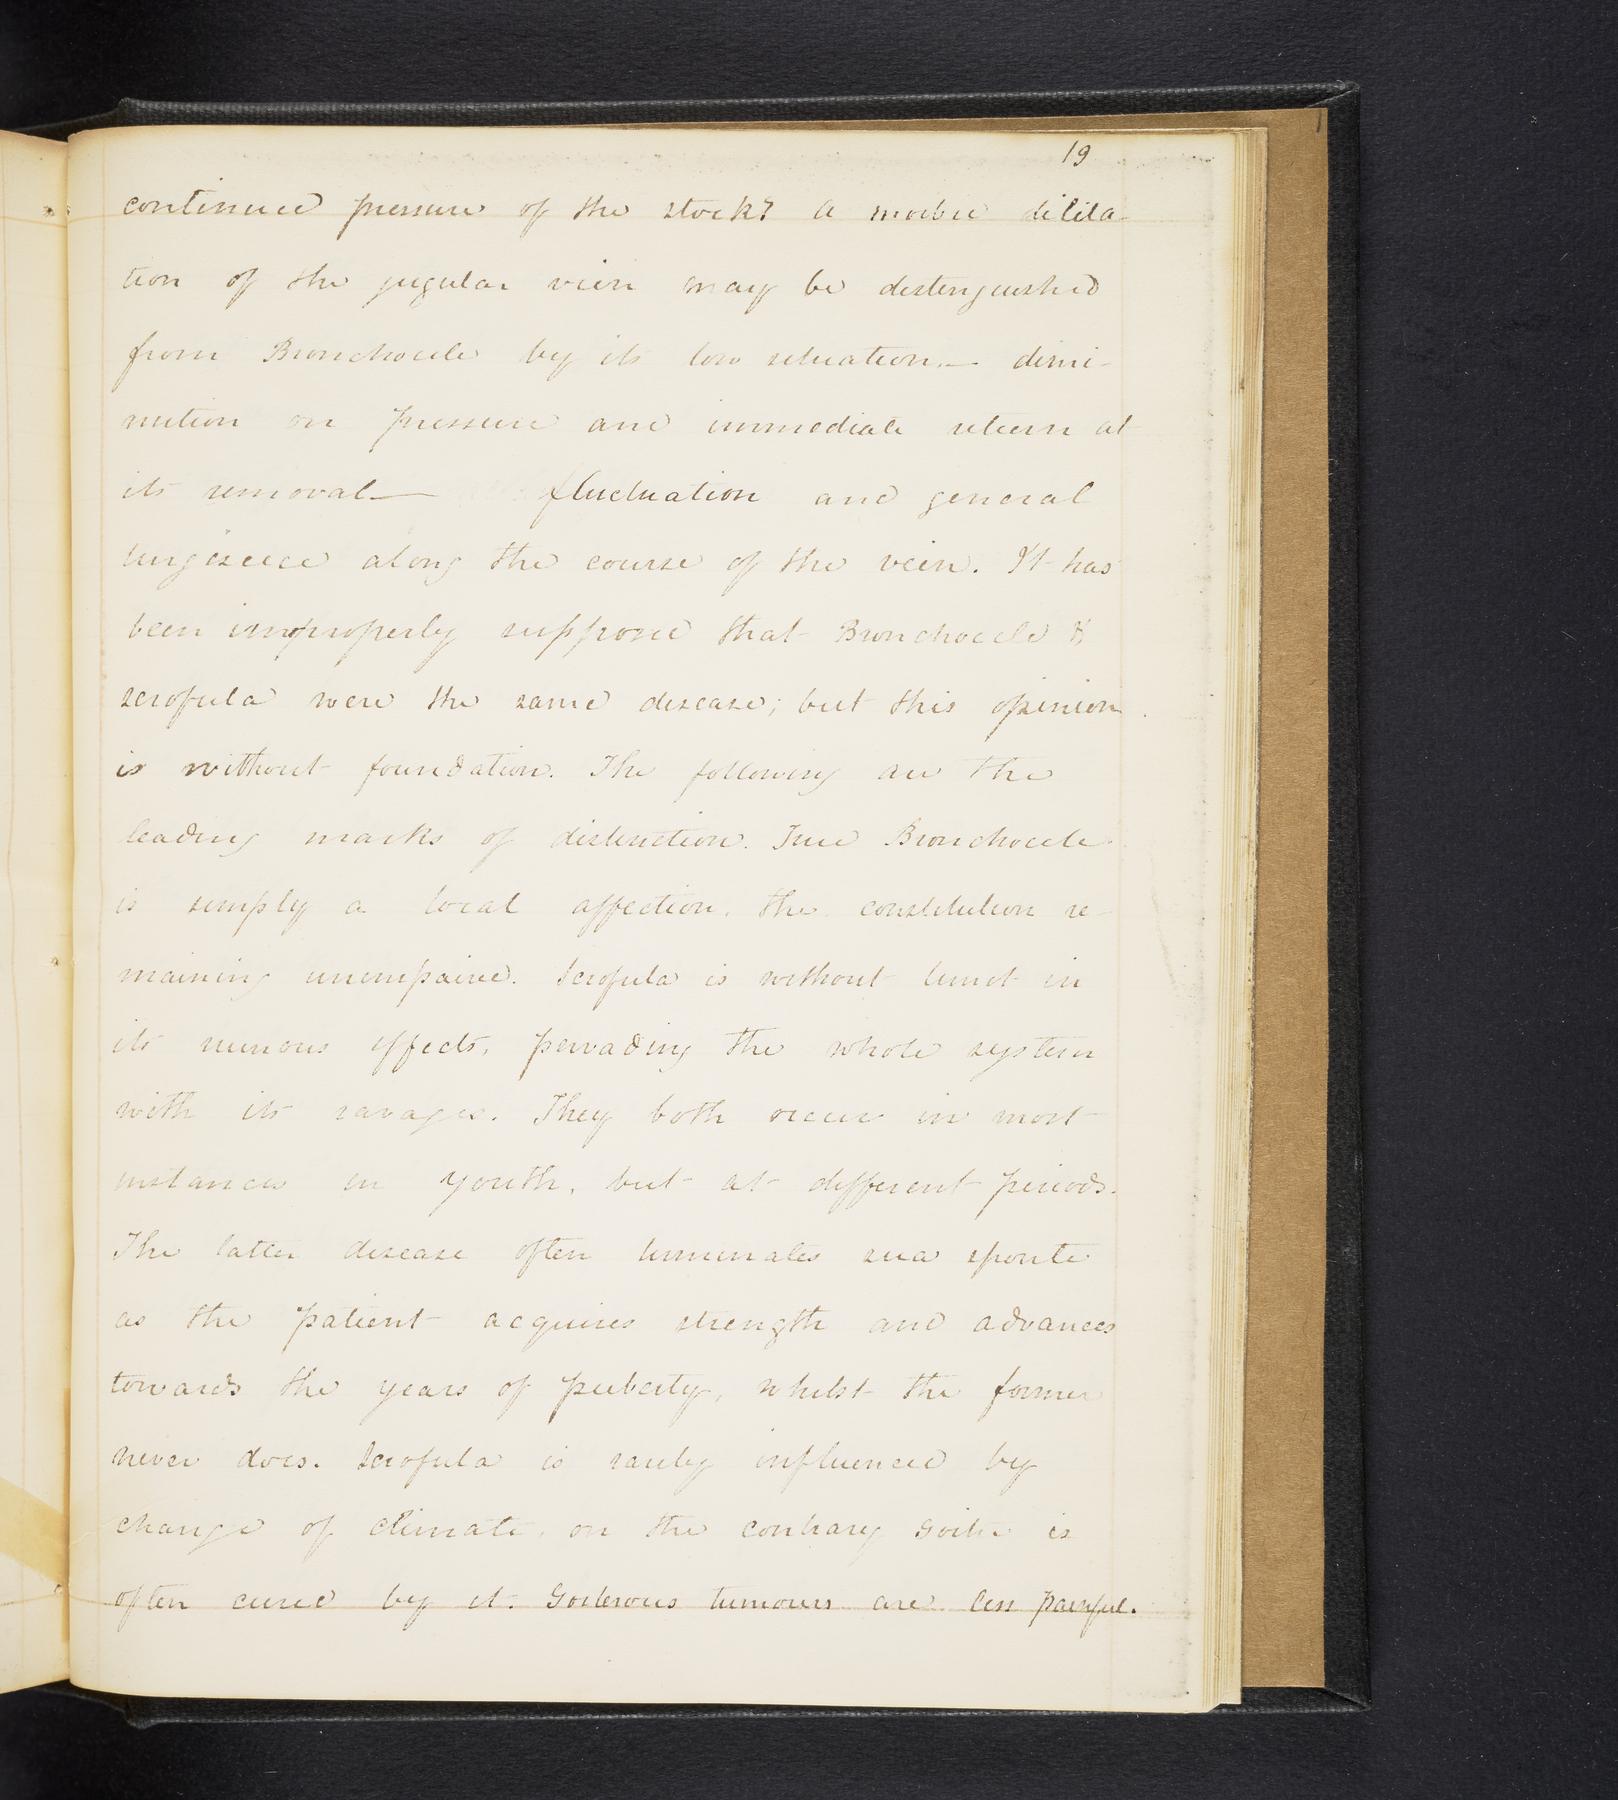 19
continued pressure of the stock? A morbid dilita-
tion of the jugular vein may be distinguished
from Bronchocele by its low situation.— dimi-
nution on pressure and immediate return at
its removal— fluctuation and general
along the course of the vein. It has
been improperly supposed that Bronchocele &
scrofula were the same disease; but this opinion
is without foundation. The following are the
leading marks of distinction. True Bronchocele
is simply a local affection, the constitution re-
maining unimpaired. Scrofula is without limit in
its ruinous effects, pervading the whole system
with its ravages. They both occur in most
instances in youth, but at different periods.
The latter disease often terminates sua sponte
as the patient acquires strength and advances
towards the years of puberty, whilst the former
never does. Scrofula is rarely influenced by
change of climate, on the contrary Goitre is
often cured by it. Goiterous tumours are less painful.